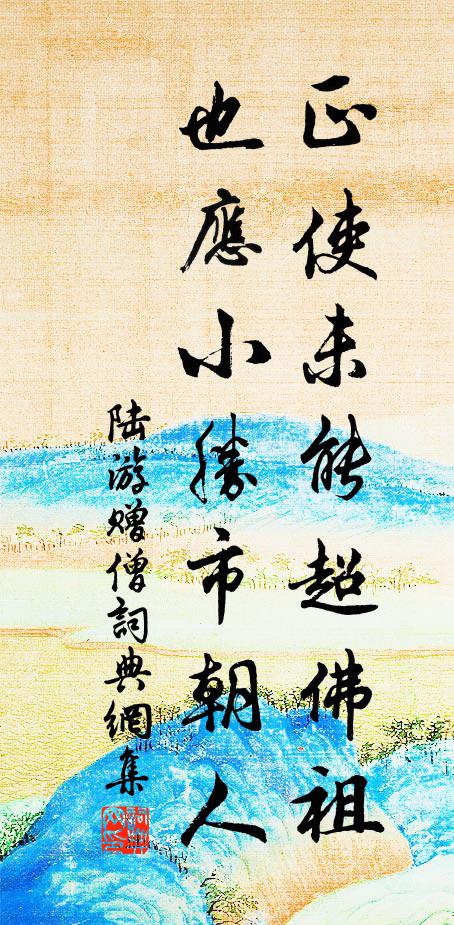 正使未能超佛祖
也應小勝市朝人
陆游赠僧詞典網集